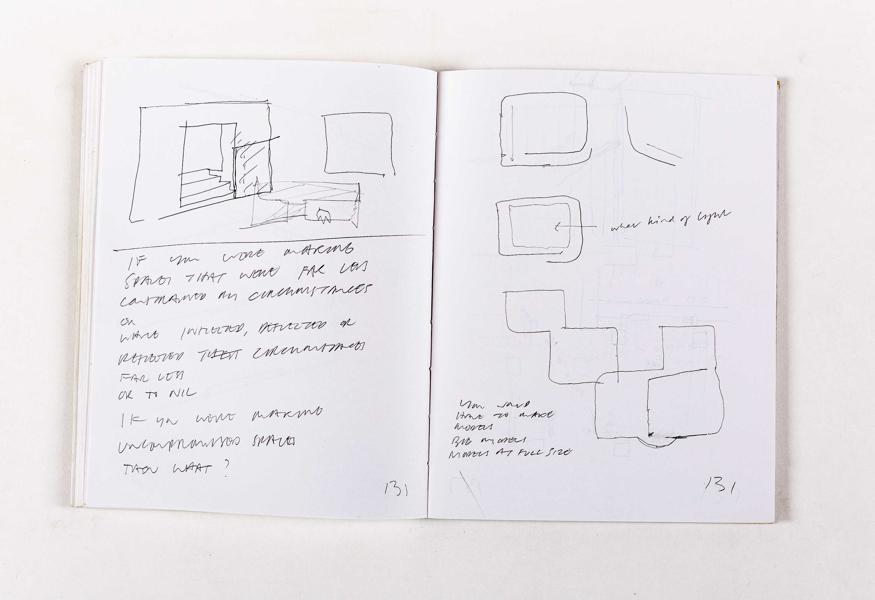 IF YOU WERE MAKING
SPACES THAT WERE FAR LESS
CONSTRAINED BY CIRCUMSTANCES
OR
WHERE INFLECTED, DEFLECTED OR
REFLECTED THESE CIRCUMSTANCES
FAR LESS
OR TO NIL
IF YOU WERE MAKING
UNCOMPROMISED SPACES
THEN WHAT ?
131
what kind of light
YOU WOULD
HAVE TO MAKE
MODELS
BIG MODELS
MODELS AT FULL SIZE
131